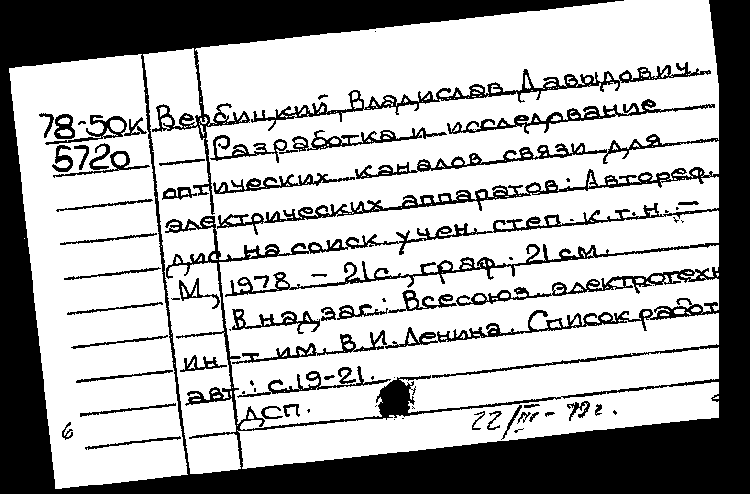 78-50к Вербицкий, Владислав Давыдович.
5720 Разработка и исследование
оптических каналов связи для
электрических аппаратов: Автореф.
дис. на соиск. учен. степ. к.т.н. –
М., 1978. – 21 с., граф.; 21 см.
В надзаг.: Всесоюз. электротехн
ин-т им. В.И. Ленина. Список работ
авт.: с. 19-21.
ДСП.
6